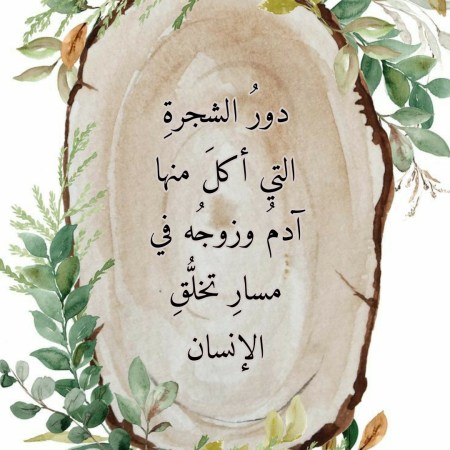 دورُ الشجرةِ
التي أكلَ منها
آدمُ وزوجُه في
مسارِ تخلُّقِ
الإنسان